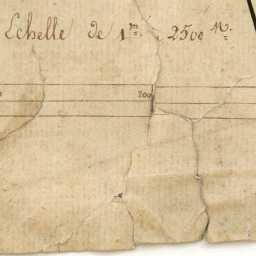 Echelle de 1m. à 2500 M.
200